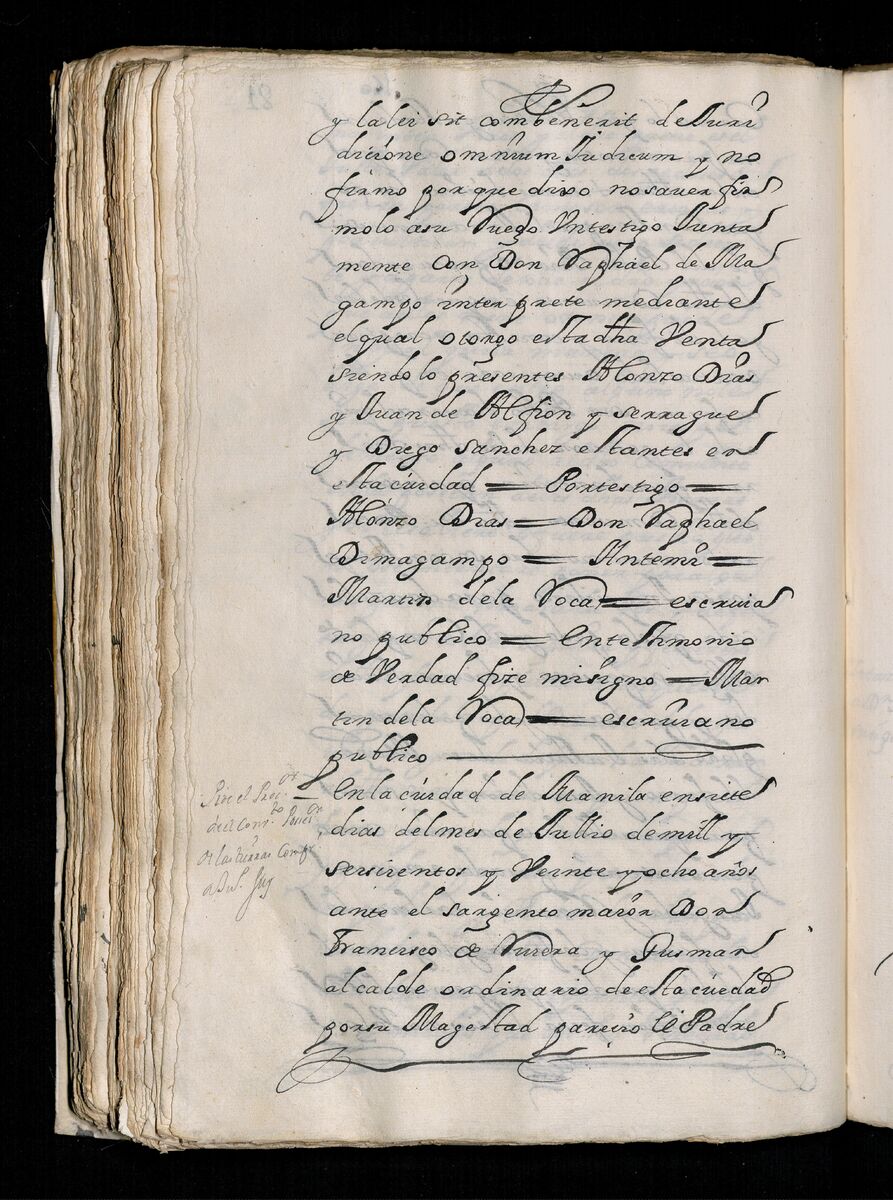 y la lei sit combenerit de Juri
dicione omnium Judicum y no
firmo porque dixo no saver fir
molo a su Ruego Untestigo Junta
mente con Don Raphael de Ma
gampo interprete mediante
el qual otorgo esta dha Venta
siendolo presentes Alonzo Dias
y Juan de Alfion y serrague
y Diego Sanchez estantes en
esta ciudad = Por testigo =
Alonzo Dias = Don Raphael
Dimagampo = Antemi =
Martin dela Roca = escriva
no publico = En testimonio
de Verdad fize misigno = Mar
tin dela Roca = escrivano
publico
En la ciudad de Manila en siete
dias del mes de Jullio de mill y
seiscientos y Veinte y ocho años
ante el sargento maior Don
Francisco de Rueda y Gusman
alcalde ordinario de esta ciudad
por su Magestad parecio el Padre
Pide el Proc.or
del Conv.to Poses.on
de las tierras